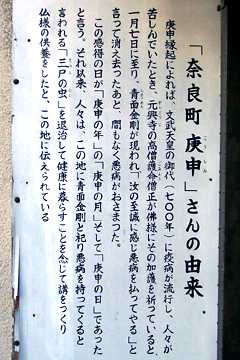 「奈良町庚申」さんの由来
庚申縁起によれば、文武天皇の御代(七〇〇年)に疫病が流行し、人々が
苦しんでいたとき、元興寺の高僧護命僧正が佛様にその加護を祈っていると
一月七日に至り、青面金剛が現われ「汝の至誠に感じ悪病を払ってやる」と
言って消え去ったあと、間もなく悪病がおさまった。
この感得の日が「庚申の年」の「庚申の月」そして「庚申の日」であった
と言う。それ以来、人々は、この地に青面金剛と祀り悪病を持ってくると
言われる「三尸の虫」を退治して健康に暮らすことを念じて講をつくり
仏様の供養をしたと、この地に伝えられている